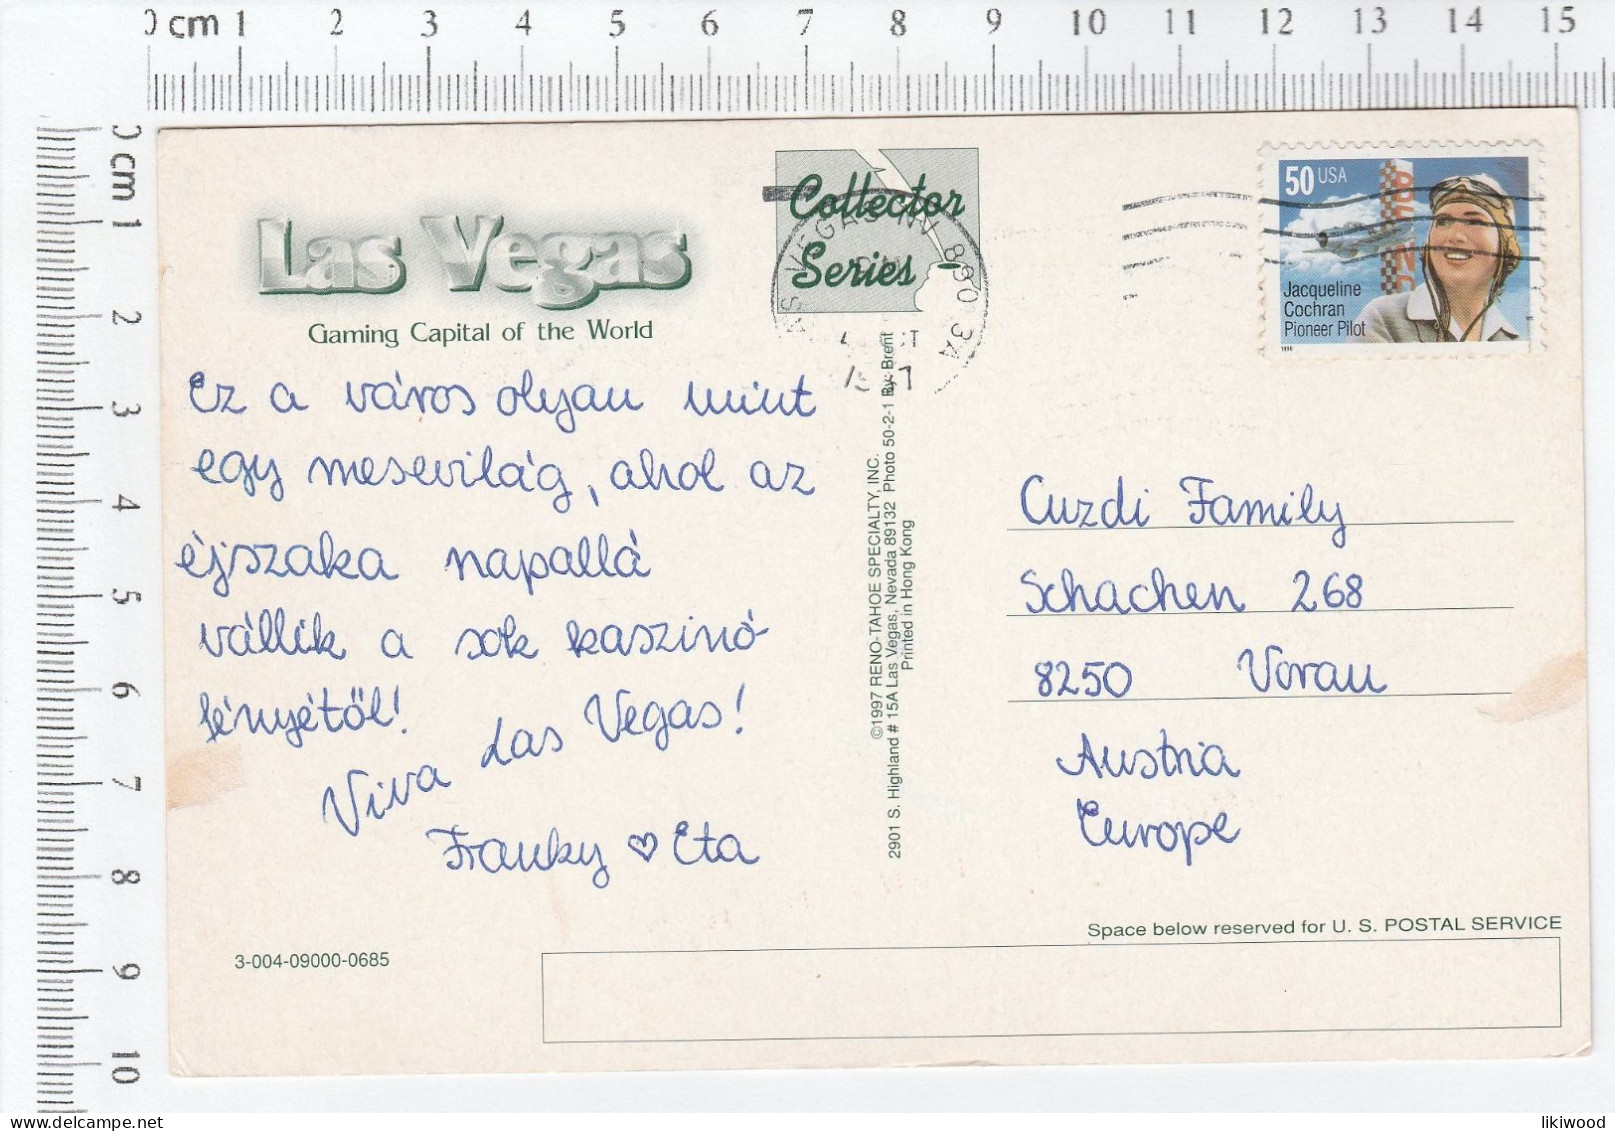 0 cm 1 2 3 4 5 6 7 8 9 10 11 12 13 14 15
0 cm 1 2 3 4 5 6 7 8 9 10
Las Vegas
Gaming Capital of the World
Collector
Series
50 USA
Jacqueline
Cochran
Pioneer Pilot
1996
Ez a város olyan mint
egy mesevilág, ahol az
éjszaka napallá
vállik a sok kaszinó
fényétől!
Viva Las Vegas!
Franky ♡ Eta
©1997 RENO-TAHOE SPECIALTY, INC.
2901 S. Highland # 15A Las Vegas, Nevada 89132 Photo 50-2-1 By: Brent
Printed in Hong Kong
Cuzdi Family
Schachen 268
8250 Vorau
Austria
Europe
Space below reserved for U. S. POSTAL SERVICE
3-004-09000-0685
likiwood